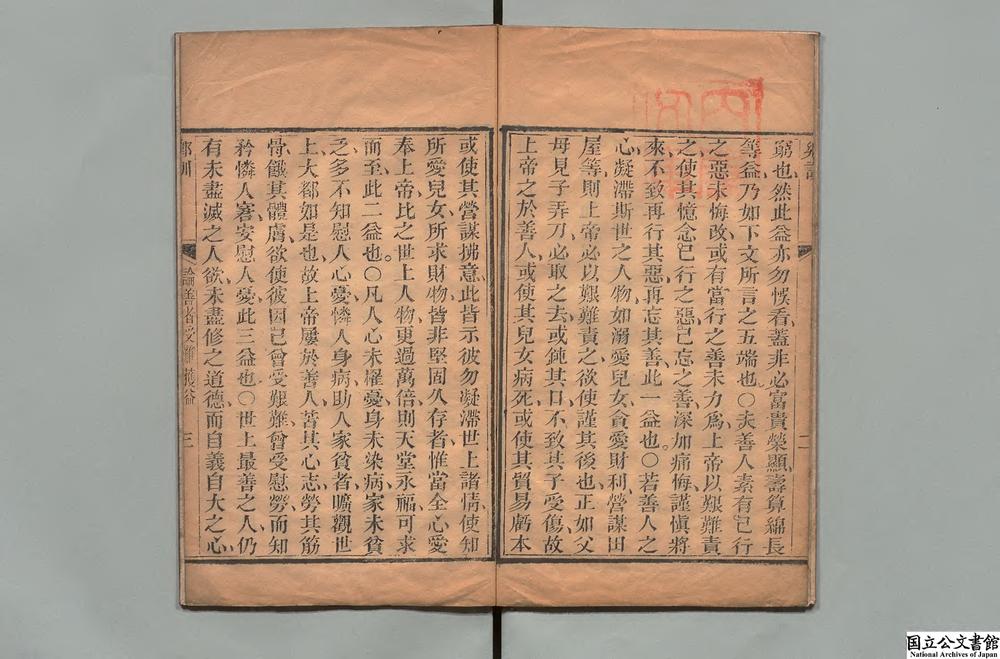 窮也然此益亦勿悞看蓋非必富貴榮顯壽算綿長
等益乃如下文所言之五端也○夫善人素有已行
之惡未悔改或有當行之善未力爲上帝以艱難責
之使其憶念已行之惡已忘之善深加痛悔謹愼將
來不致再行其惡再忘其善此一益也○若善人之
心凝滯斯世之人物如溺愛兒女貪愛財利營謀田
屋等則上帝必以艱難責之欲使謹其後也正如父
母見子弄刀必取之去或鈍其口不致其子受傷故
上帝之於善人或使其兒女病死或使其貿易虧本
二
或使其營謀拂意此皆示彼勿凝滯世上諸情使知
所愛兒女所求財物皆非堅固久存者惟當全心愛
奉上帝比之世上人物更過萬倍則天堂永福可求
而至此二益也○凡人心未罹憂身未染病家未貧
乏多不知慰人心憂憐人身病助人家貧者曠觀世
上大都如是也故上帝屢於善人苦其心志勞其筋
骨餓其體膚欲使彼因己曾受艱難曾受慰勞而知
矜憐人窘安慰人憂此三益也○世上最善之人仍
有未盡滅之人欲未盡修之道德而自義自大之心
論善者受難獲益
三
国立公文書館
National Archives of Japan